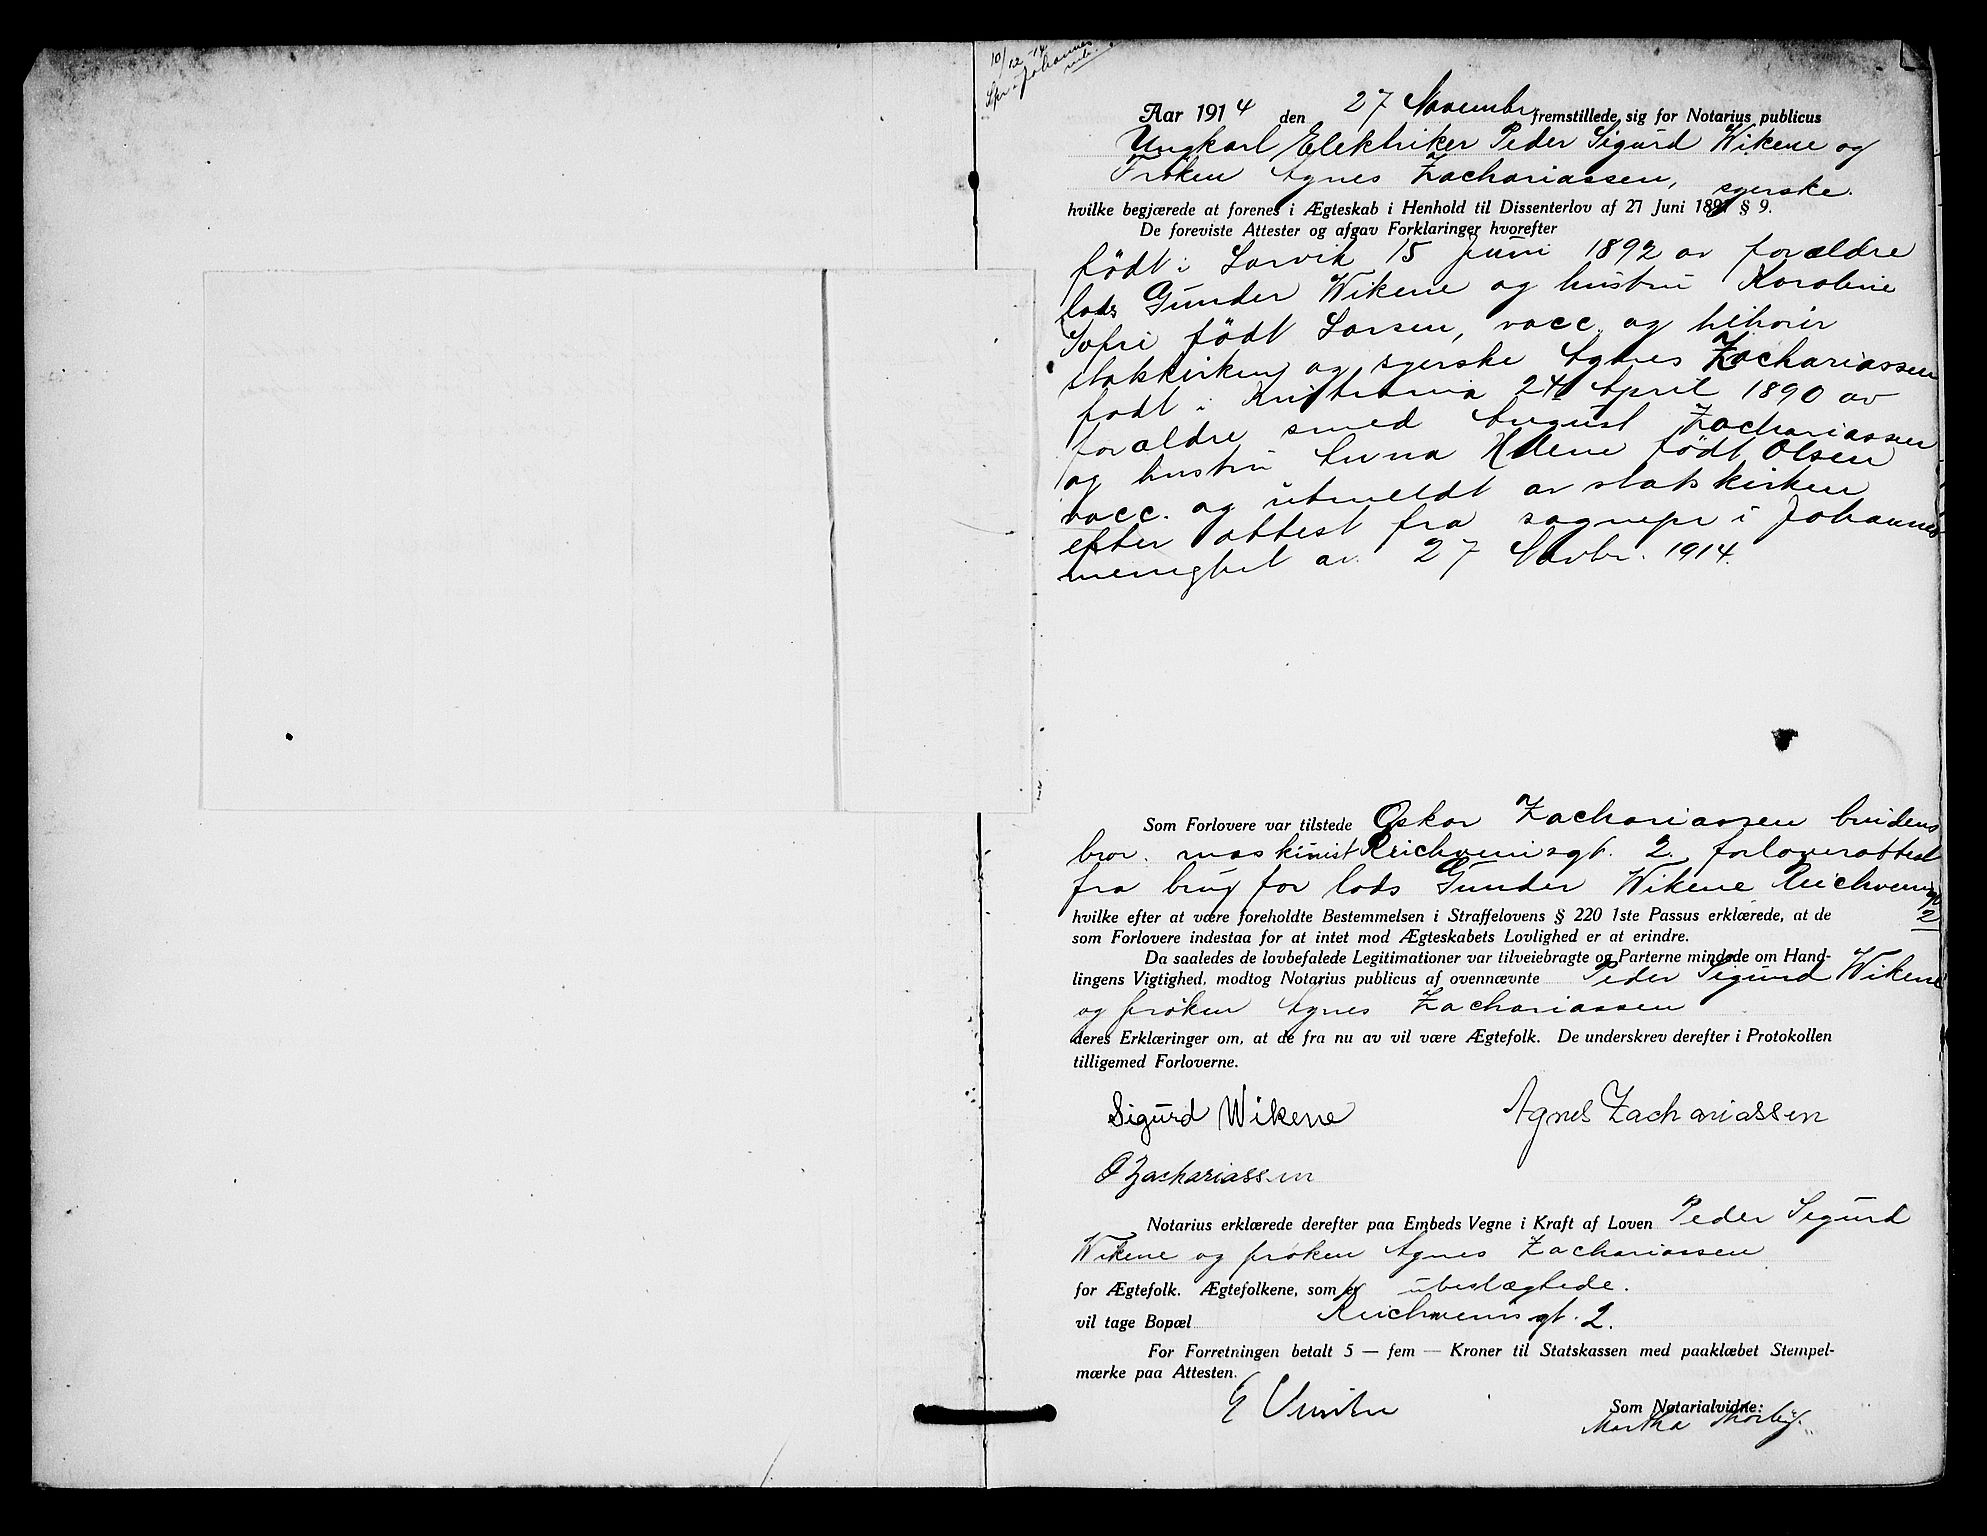 10/12 - 14
Spr. i Johannes
mh.
Aar 1914 den 27 Novembr fremstillede sig for Notarius publicus
Ungkarl Elektriker Peder Sigurd Wikene og
Frøken Agnes Zachariassen, syerske.
hvilke begjærede at forenes i Ægteskab i Henhold til Dissenterlov af 27 Juni 1891 § 9.
De foreviste Attester og afgav Forklaringer hvorefter
født i Larvik 15 Juni 1892 av forældre
lods Gunder Wikene og hustru Karoline
Sofie født Larsen, vacc. og tilhører
statskirken og syerske Agnes Zachariassen
født i Kristiania 24 April 1890 av
forældre smed August Zachariassen
og hustru Anna Helene født Olsen
vacc. og utmeldt av statskirken
efter attest fra sognepr i Johannes
menighet av 27 Novbr. 1914.
Som Forlovere var tilstede Oskar Zachariassen brudens
bror. maskinist Reichweinsgt. 2. forloverattest
fra brug for lods Gunder Wikene Reichweinsgt
2
hvilke efter at være foreholdte Bestemmelsen i Straffelovens § 220 1ste Passus erklærede, at de
som Forlovere indestaa for at intet mod Ægteskabets Lovlighed er at erindre.
Da saaledes de lovbefalede Legitimationer var tilveiebragte og Parterne mindede om Hand-
lingens Vigtighed, modtog Notarius publicus af ovennævnte Peder Sigurd Wikene
og frøken Agnes Zachariassen
deres Erklæringer om, at de fra nu av vil være Ægtefolk. De underskrev derefter i Protokollen
tilligemed Forloverne.
Sigurd Wikene Agnes Zachariassen
O Zachariassen
Notarius erklærede derefter paa Embeds Vegne i Kraft af Loven Peder Sigurd
Wikene og frøken Agnes Zachariassen
for Ægtefolk. Ægtefolkene, som er ubeslægtede.
vil tage Bopæl Reichweinsgt. 2.
For Forretningen betalt 5 — fem — Kroner til Statskassen med paaklæbet Stempel-
mærke paa Attesten.
Som Notarialvidne:
Martha